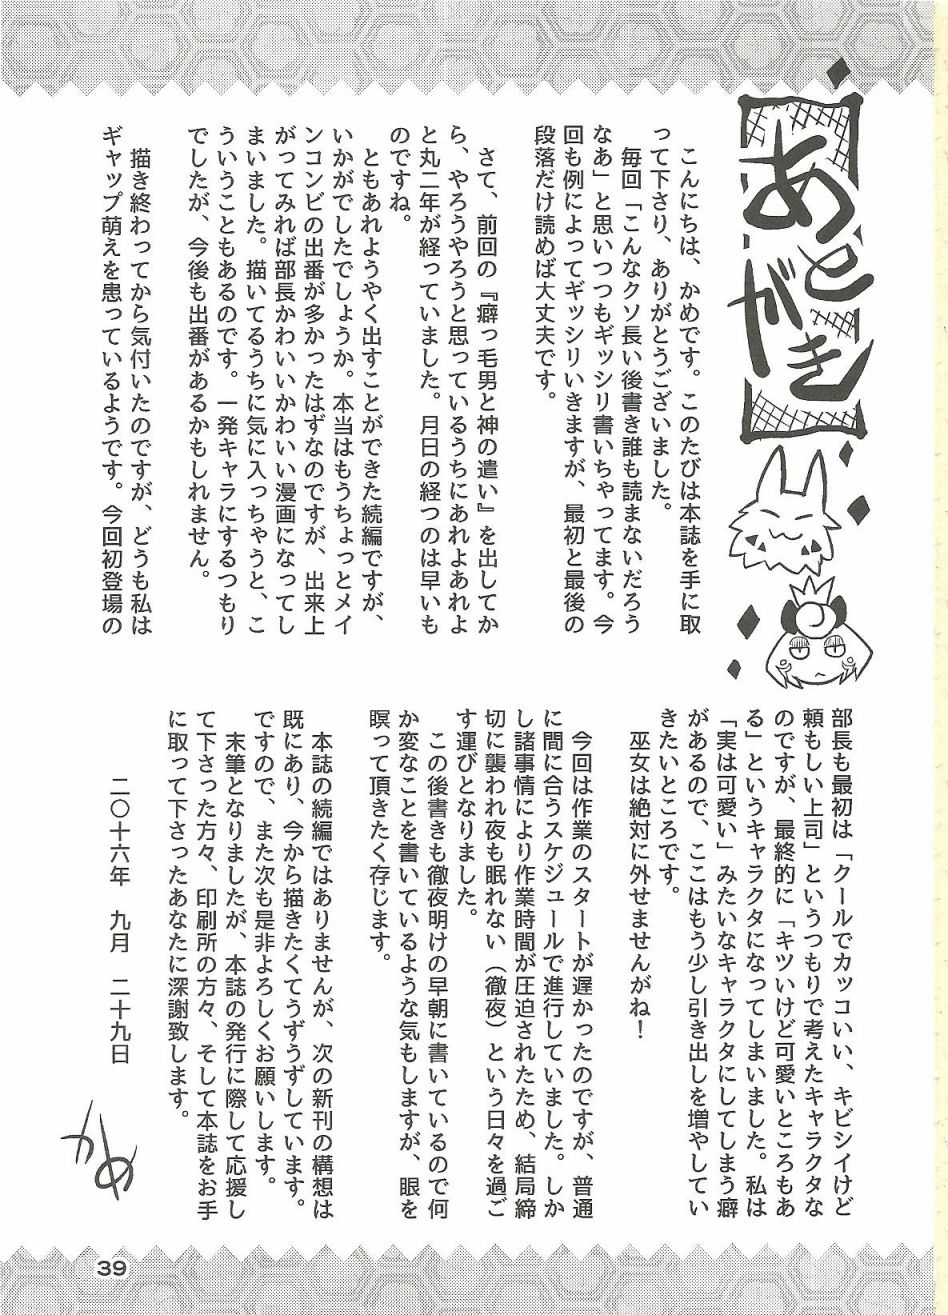 あとがき
　こんにちは、かめです。このたびは本誌を手に取
って下さり、ありがとうございました。
　毎回「こんなクソ長い後書き誰も読まないだろう
なあ」と思いつつもギッシリ書いちゃってます。今
回も例によってギッシリいきますが、最初と最後の
段落だけ読めば大丈夫です。
　さて、前回の『癖っ毛男と神の遣い』を出してか
ら、やろうやろうと思っているうちにあれよあれよ
と丸二年が経っていました。月日の経つのは早いも
のですね。
　ともあれようやく出すことができた続編ですが、
いかがでしたでしょうか。本当はもうちょっとメイ
ンコンビの出番が多かったはずなのですが、出来上
がってみれば部長かわいいかわいい漫画になってし
まいました。描いてるうちに気に入っちゃうと、こ
ういうこともあるのです。一発キャラにするつもり
でしたが、今後も出番があるかもしれません。
　描き終わってから気付いたのですが、どうも私は
ギャップ萌えを患っているようです。今回初登場の
部長も最初は「クールでカッコいい、キビシイけど
頼もしい上司」というつもりで考えたキャラクタな
のですが、最終的に「キツいけど可愛いところもあ
る」というキャラクタになってしまいました。私は
「実は可愛い」みたいなキャラクタにしてしまう癖
があるので、ここはもう少し引き出しを増やしてい
きたいところです。
　巫女は絶対に外せませんがね！
　今回は作業のスタートが遅かったのですが、普通
に間に合うスケジュールで進行していました。しか
し諸事情により作業時間が圧迫されたため、結局締
切に襲われ夜も眠れない（徹夜）という日々を過ご
す運びとなりました。
　この後書きも徹夜明けの早朝に書いているので何
か変なことを書いているような気もしますが、眼を
瞑って頂きたく存じます。
　本誌の続編ではありませんが、次の新刊の構想は
既にあり、今から描きたくてうずうずしています。
ですので、また次も是非よろしくお願いします。
　末筆となりましたが、本誌の発行に際して応援し
て下さった方々、印刷所の方々、そして本誌をお手
に取って下さったあなたに深謝致します。
二〇十六年　九月　二十九日
かめ
39